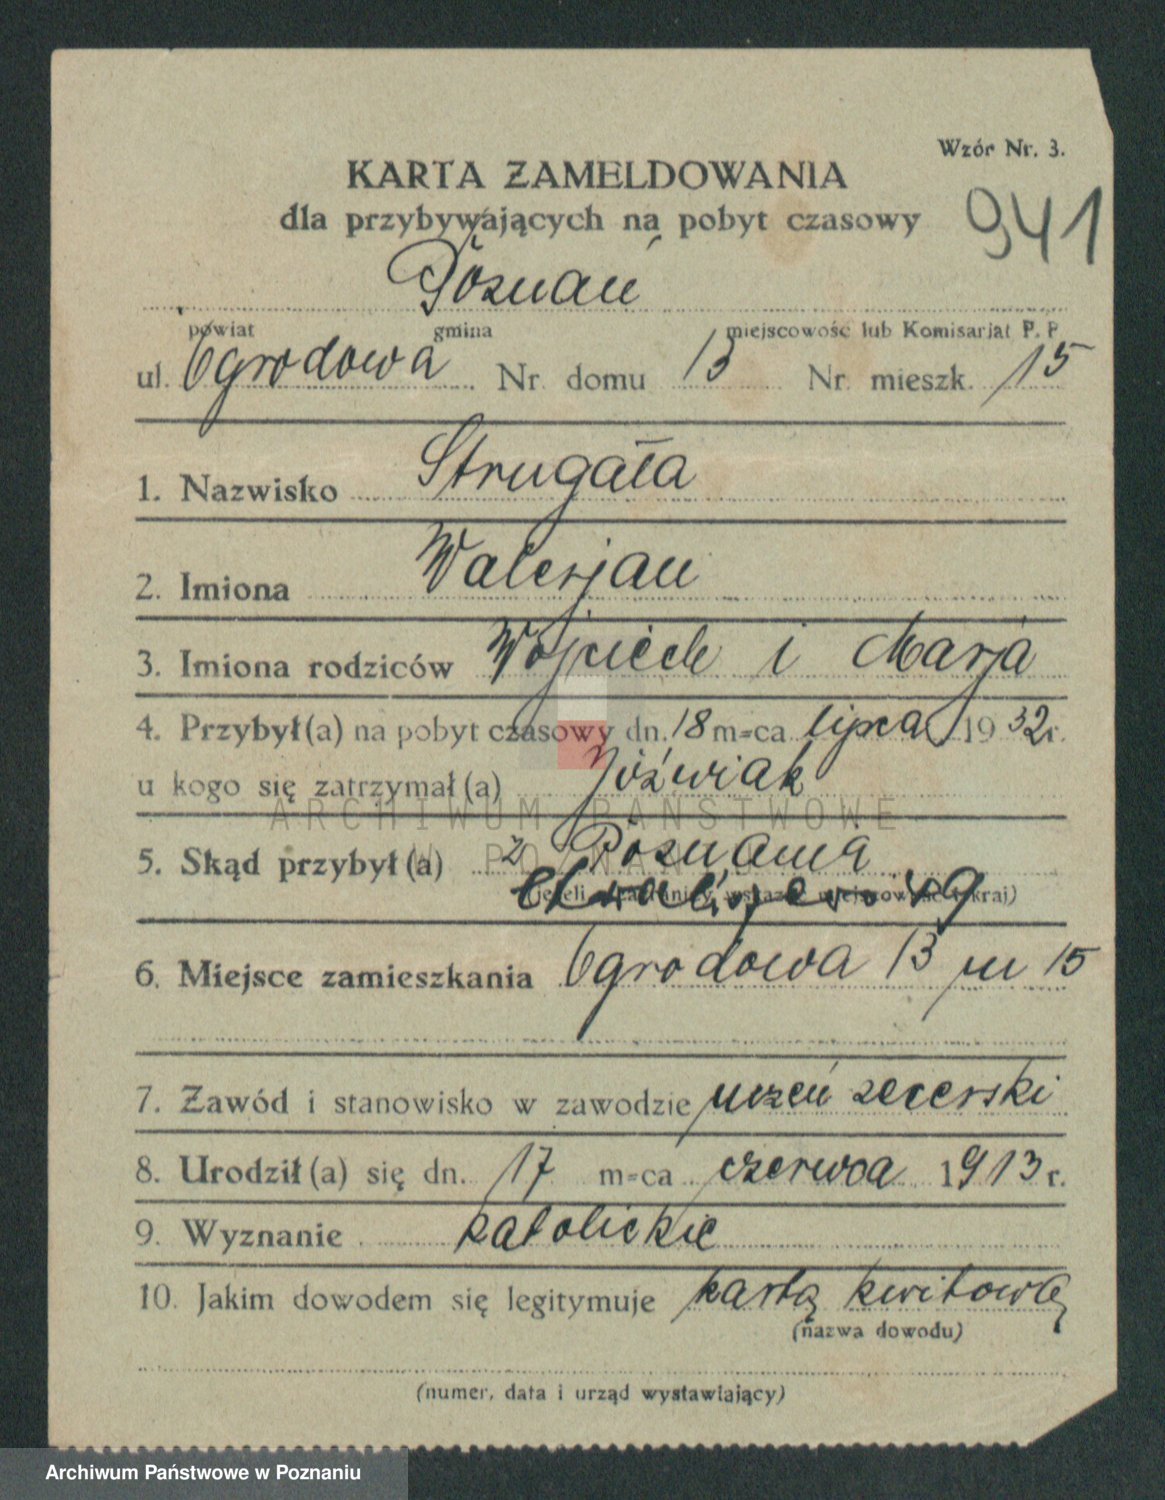 Wzór Nr. 3.
KARTA ZAMELDOWANIA
dla przybywających na pobyt czasowy
941
Poznań
powiat gmina miejscowość lub Komisarjat P. P.
ul. Ogrodowa Nr domu 13 Nr mieszk. 15
1. Nazwisko Strugała
2. Imiona Walerjan
3. Imiona rodziców Wojciech i Marja
4. Przybył(a) na pobyt czasowy dn. 18 m-ca lipca 1932 r.
u kogo się zatrzymał(a) Jóźwiak
ARCHIWUM PAŃSTWOWE
5. Skąd przybył(a) z Poznania
W POZNANIU
(jeżeli z zagranicy wskazać miejscowość i kraj)
19
6. Miejsce zamieszkania Ogrodowa 13 m 15
7. Zawód i stanowisko w zawodzie uczeń zecerski
8. Urodził(a) się dn. 17 m-ca czerwca 1913 r.
9. Wyznanie katolickie
10. Jakim dowodem się legitymuje kartą kwitową
(nazwa dowodu)
(numer, data i urząd wystawiający)
Archiwum Państwowe w Poznaniu